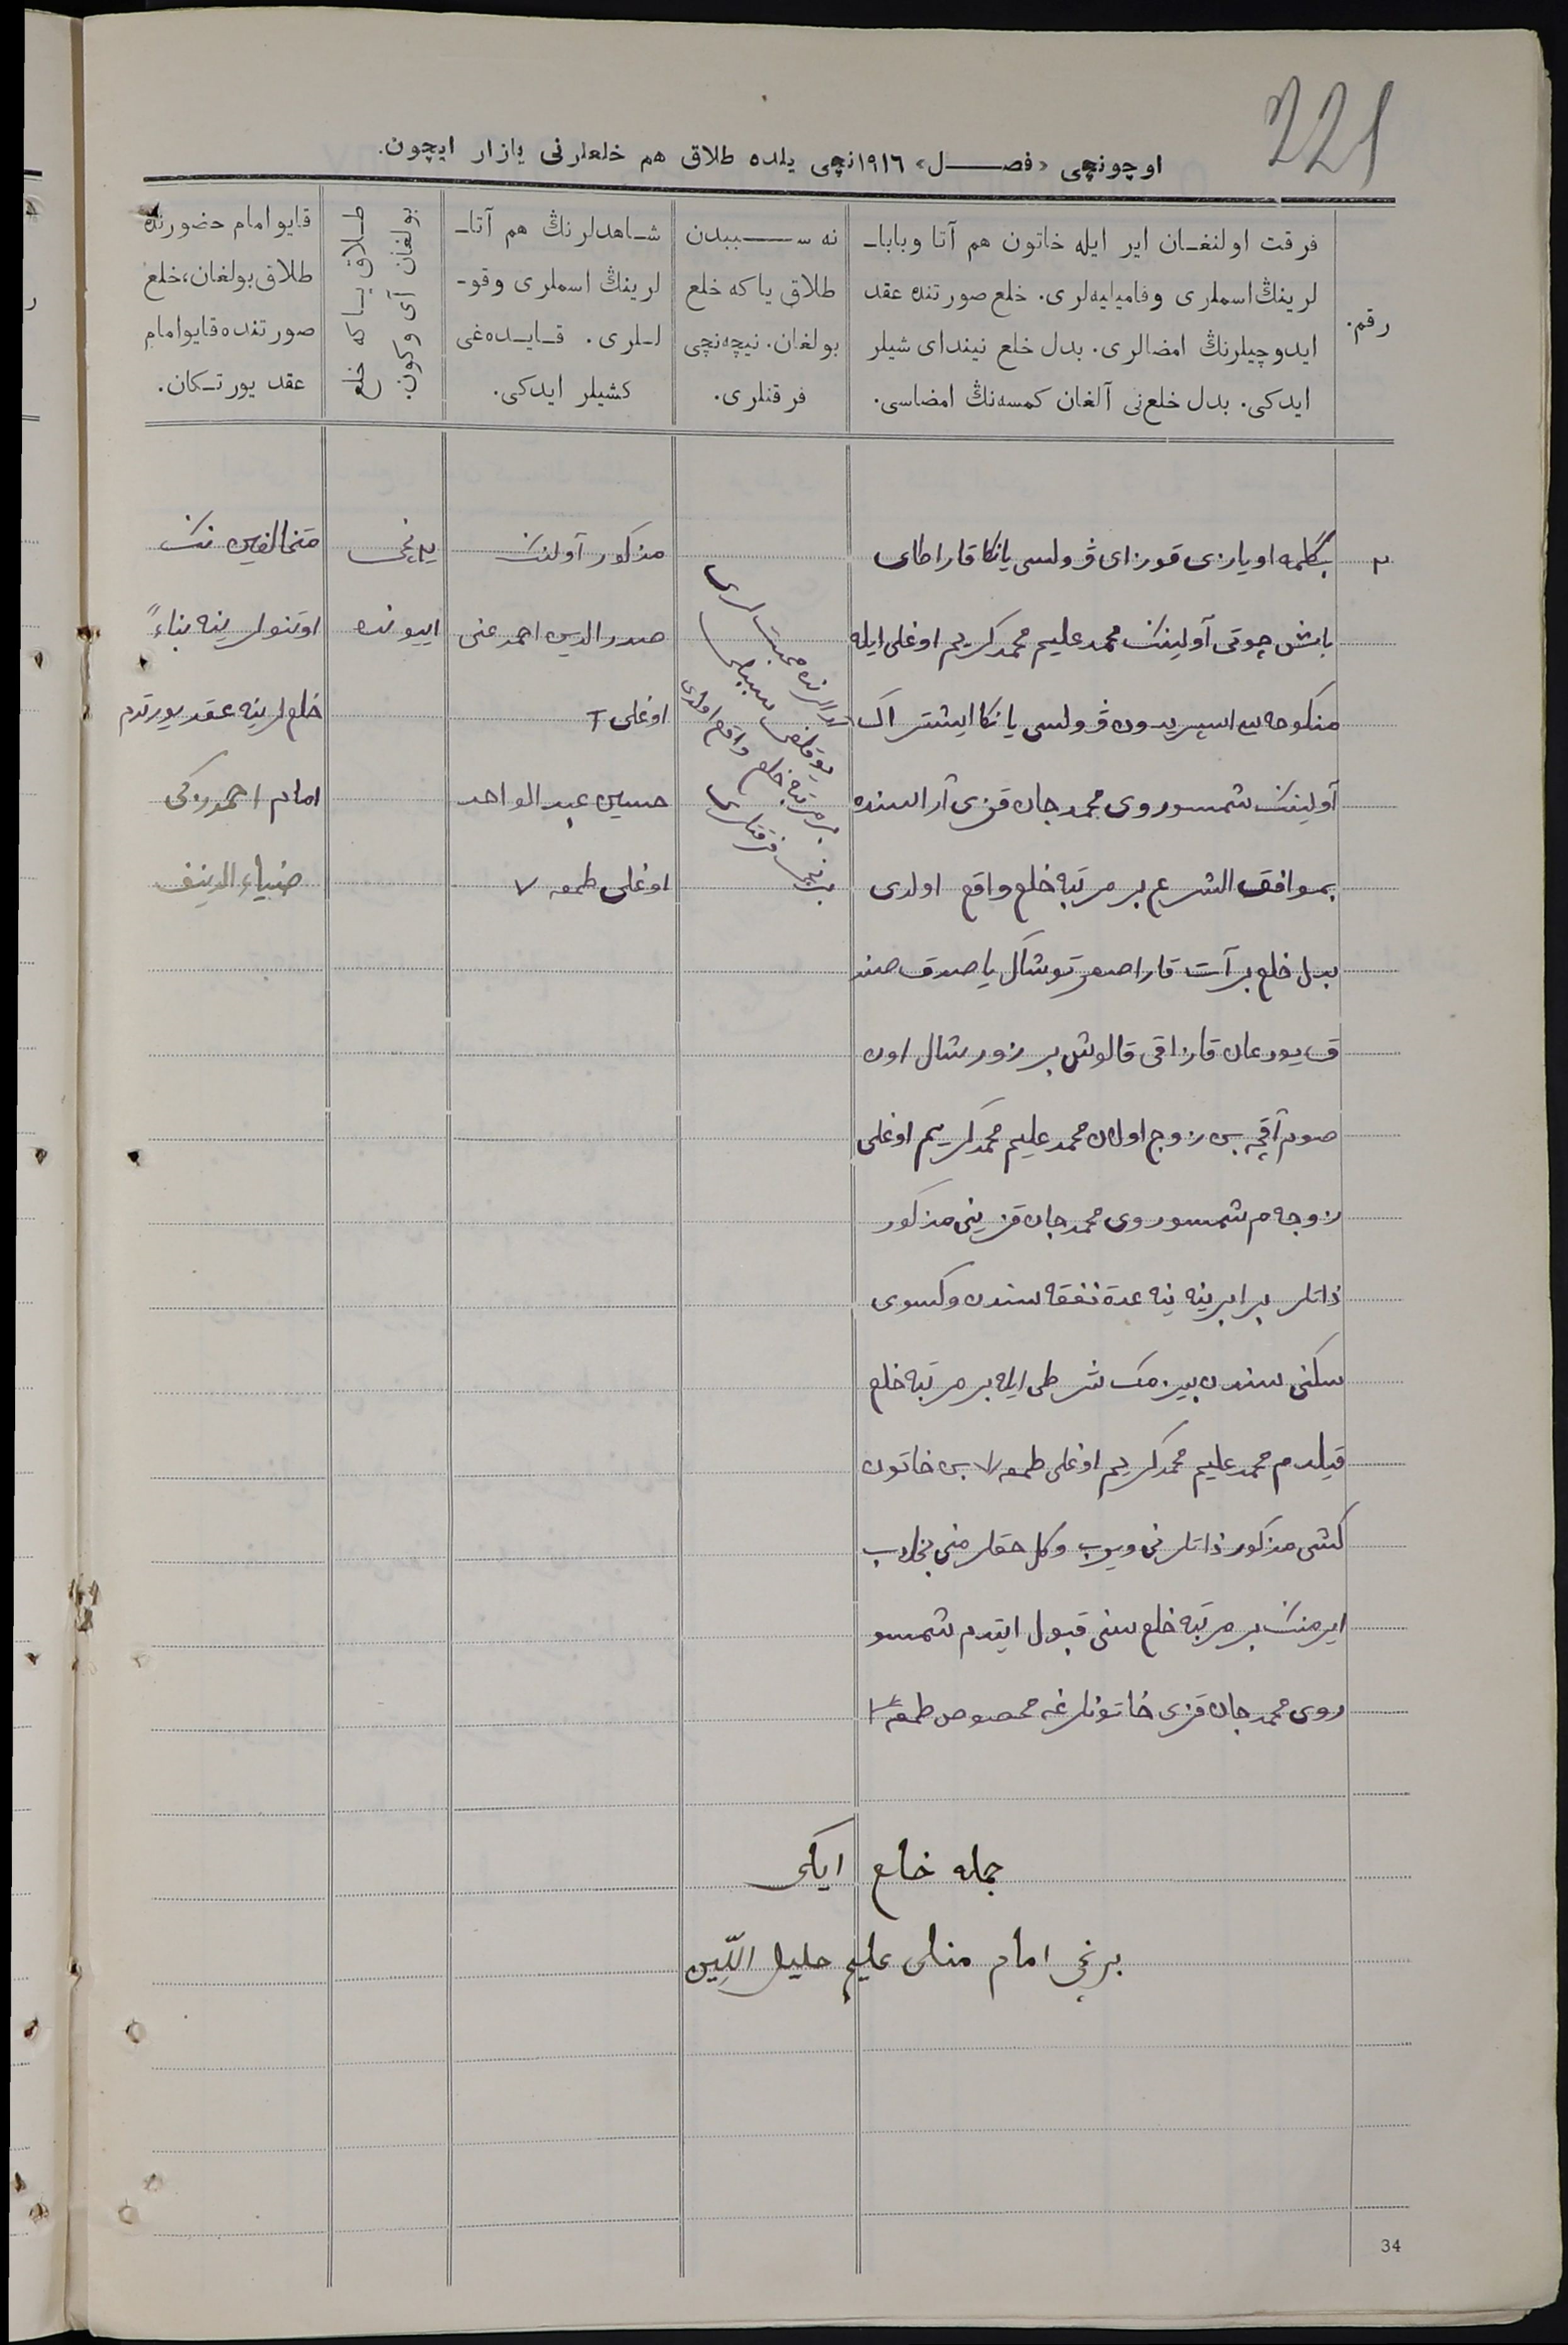 221
اوچونچی «فصــــل» ١٩١٦نچی یلده طلاق هم خلعلرنی یازار ایچون.
رقم.
فرقت اولنغـان ایر ایله خاتون هم آتا وبابا۔
لرینڭ اسملری وفامیلیه‌لری. خلع صورتنده عقد
ایدوچیلرنڭ امضالری. بدل خلع نیندای شیلر
ایدکی. بدل خلع‌نی آلغان کمسه‌نڭ امضاسی.
نه ســـببدن
طلاق یاکه خلع
بولغان. نیچه‌نچی
فرقتلری.
شـاهدلرنڭ هم آتا۔
لرینڭ اسملری وقو۔
لـلری. قـایـده‌غی
کشیلر ایدکی.
طـلاق یـاکه خلع
بولغان آی وکون.
قایو امام حضورنده
طلاق بولغان، خلع
صورتنده قایو امام
عقد یورتـکان.
٢
بگلمه اویازی قوزای ڤولسی یانکا قاراطای
باش چوتی آولینک محمدعلیم محمدکریم اوغلی ایله
منکوحه سی اسپریدون ڤولسی یانکا ایشتراک
آولینک شمسوروی محمدجان قزی آراسنده
بموافق الشرع بر مرتبه خلع واقع اولدی
بدل خلع بر آت قارا صغر توشاک یاصدق صند
ق یورغان قازاقی قالوش بر زور شال اون
صوم آقچه بس زوج اولان محمدعلیم محمدکریم اوغلی
زوجه م شمسوروی محمدجان قزینی مذکور
ذاتلر برابرینه ینه عدة نفقه سندن وکسوی
سکنی سندن بیزمک شرطی ایله بر مرتبه خلع
قیلدم محمدعلیم محمدکریم اوغلی طمعه V بس خاتون
کشی مذکور ذاتلرنی ویروب وکل حقلرمنی
ایرمنک بر مرتبه خلع سنی قبول ایتدم شمسو
روی محمدجان قزی خاتونلرغه مخصوص طمعه
آرالرنده محبتلری
یوقلقی سببلی
بر مرتبه خلع واقع اولدی
برنجی فرقتلری
مذکور آولنک
صدرالدین احمدغنی
اوغلی T
حسین عبدالواحد
اوغلی طمعه V
ییونده
متخالفین نک
اوتنولرینه بناءً
خلع لرینه عقد یورتدم
امام احمدزکی
ضیاءالدینف
جمله خلع ایکی
برنجی امام منلی علیم
34